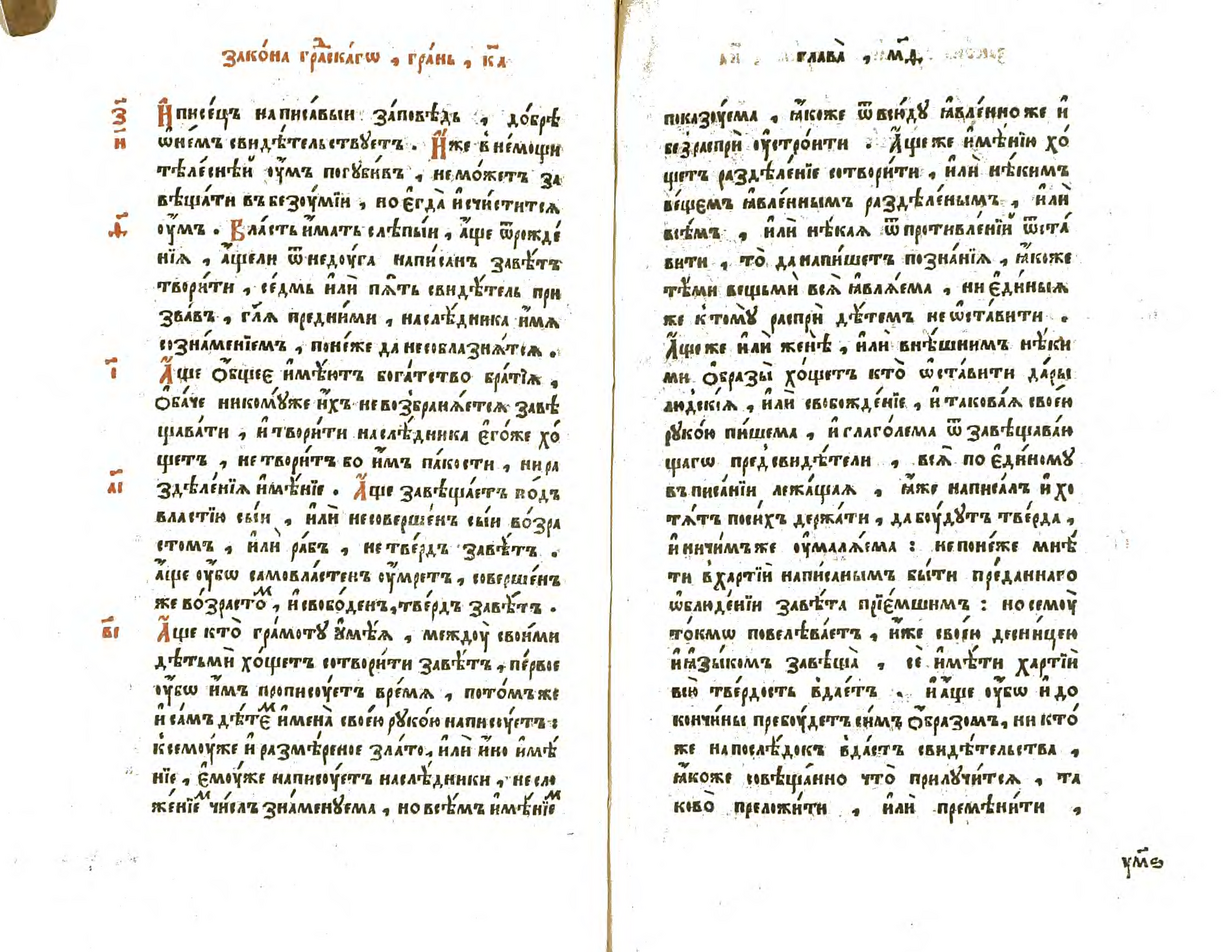 Зако́на гра́дскагѡ , гра́нь , к҃а
з҃ И҆писе́цъ написа́выи за́повѣдь , до́брѣ
и҃ ѡ҆не́мъ свидѣ́тельствуетъ . И҆́же в не́мощи
тѣле́снѣй оу҆́мъ погуби́въ , не мо́жетъ за
вѣща́ти въ безꙋ́мїи , но є҆гда̀ и҆счи́стится
ѳ҃ оу҆́мъ . Вла́сть и҆́мать слѣпы́и , а҆́ще ѿ рожде́
нїѧ , а҆́щели ѿ недоу́га написа́нъ завѣ́тъ
твори́ти , се́дмь и҆лѝ пѧ́ть свидѣ́тель при
зва́въ , гл҃ѧ пред ни́ми , наслѣ́дника и҆́мѧ
со зна́менїемъ , поне́же да не соблазнѧ́тсѧ .
і҃ А҆́ще ѻ҆́бщее и҆мѣ́ютъ бога́тство бра́тїѧ ,
ѻ҆ба́че никомꙋ́же и҆́хъ не возбранѧ́етсѧ завѣ
щава́ти , и҆ твори́ти наслѣ́дника є҆го́же хо́
щетъ , не твори́тъ бо и҆̀мъ па́кости , ни ра
а҃і здѣле́нїѧ и҆мѣ́нїе . А҆́ще завѣща́етъ по́дъ
вла́стїю сы́и , и҆лѝ несоверше́нъ сы́и во́зра
стомъ , и҆лѝ ра́бъ , не тве́рдъ завѣ́тъ .
а҆́ще оу҆́бѡ самовла́стенъ оу҆́мретъ , соверше́нъ
же во́зрастоⷨ , и҆ свобо́денъ, тве́рдъ завѣ́тъ .
в҃і А҆́ще кто̀ гра́мотꙋ оу҆мѣ́ѧ , междоу̀ свои́ми
дѣтьмѝ хо́щетъ сотвори́ти завѣ́тъ , пе́рвое
оу҆́бѡ и҆̀мъ прописоу́етъ вре́мѧ , пото́мъ же
и҆ са́мъ дѣ́теⷨ и҆мена̀ свое́ю рꙋко́ю написоу́етъ :
к семоу́же и҆ размѣ́реное зла́то , и҆лѝ и҆́но и҆мѣ́
нїе , є҆моу́же написоу́етъ наслѣ́дники , не сло
же́нїеⷨ чи́слъ зна́менꙋема , но всѣ́мъ и҆мѣ́нїеⷨ
глава̀ , м҃д
показоу́ема , ꙗ҆́коже ѿвсю́дꙋ ꙗ҆вле́нно же и҆
без ра́спри оу҆стро́ити . А҆́ще же и҆мѣ́нїю хо́
щетъ раздѣле́нїе сотвори́ти , и҆лѝ нѣ́кимъ
ве́щемъ ꙗ҆вле́ннымъ раздѣле́нымъ , и҆лѝ
всѣ́мъ , и҆лѝ нѣ́каѧ ѿ противле́нїй ѡ҆ста́
вити , то̀ да напи́шетъ позна́нїѧ , ꙗ҆́коже
тѣ́ми вещьмѝ всѧ̀ ꙗ҆влѧ́ема , ни є҆ди́ныѧ
же к томꙋ̀ ра́спри дѣ́темъ не ѡ҆ста́вити .
А҆́ще же и҆лѝ женѣ̀ , и҆лѝ внѣ́шнимъ нѣ́ки
ми ѻ҆́бразы хо́щетъ кто̀ ѡ҆ста́вити да́ры
людскі́ѧ , и҆лѝ свобожде́нїе , и҆ такова́ѧ свое́ю
рꙋко́ю пи́шема , и҆ глаго́лема ѿ завѣщава́ю
щагѡ пред свидѣ́тели , всѧ̀ по є҆ди́номꙋ
въ писа́нїи лежа́щаѧ , ꙗ҆́же написа́лъ и҆ хо
тѧ́тъ по си́хъ держа́ти , да боу́дꙋтъ тве́рда ,
и҆ ничи́мъ же оу҆малѧ́ема : не поне́же мнѣ́
ти в ха́ртїй напи́санымъ бы́ти пре́даннаго
ѡ҆блюде́нїи завѣ́та прїе́мшимъ : но семоу̀
то́кмѡ повелѣва́етъ , и҆́же свое́ю десни́цею
и҆ ꙗ҆зы́комъ завѣща̀ , се́ и҆мѣ́ти ха́ртїй
всю̀ тве́рдость вдае́тъ . и҆ а҆́ще оу҆́бѡ и҆ до
кончи́ны пребоу́детъ си́мъ ѻ҆́бразомъ, ни кто́
же на послѣ́докъ вда́стъ свидѣ́тельства ,
ꙗ҆́коже совѣща́нно что̀ прилꙋчи́тсѧ , та
ково̀ преложи́ти , и҆лѝ премѣни́ти ,
ум҃ѳ